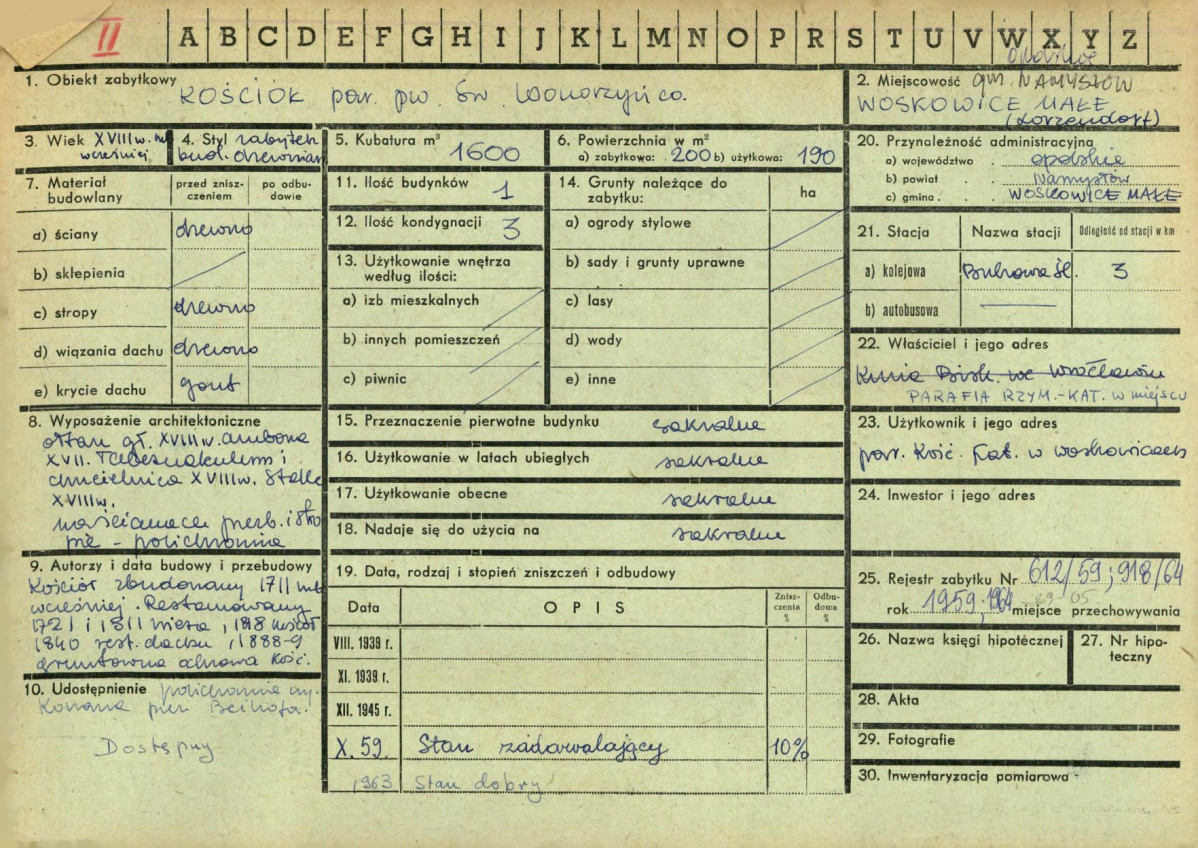 II
A B C D E F G H I J K L M N O P R S T U V W X Y Z
1. Obiekt zabytkowy
KOŚCIÓŁ par. pw. Św. Wawrzyńca.
2. Miejscowość gm. NAMYSŁÓW
opolskie
WOSKOWICE MAŁE
(Lorzendorf)
3. Wiek XVIII w. lub
wcześniej
4. Styl zabytek
bud. drewnian
5. Kubatura m³ 1600
6. Powierzchnia w m²
a) zabytkowa: 200 b) użytkowa: 190
7. Materiał
budowlany
przed znisz-
czeniem
po odbu-
dowie
a) ściany drewno
b) sklepienia
c) stropy drewno
d) wiązania dachu drewno
e) krycie dachu gont
8. Wyposażenie architektoniczne
ołtarz gł. XVIII w. ambona
XVII. Tabernakulum i
chrzcielnica XVIII w. Stalle
XVIII w.
na ścianach prezb. i stro
pie - polichromia
9. Autorzy i data budowy i przebudowy
Kościół zbudowany 1711 lub
wcześniej. Restaurowany
1721 i 1811 wieża, 1818 kościół
1840 rest. dachu, 1888-9
gruntowna odnowa kość.
10. Udostępnienie polichromia wy-
konana przez
Dostępny
11. Ilość budynków 1
12. Ilość kondygnacji 3
13. Użytkowanie wnętrza
według ilości:
a) izb mieszkalnych
b) innych pomieszczeń
c) piwnic
14. Grunty należące do
zabytku:
ha
a) ogrody stylowe
b) sady i grunty uprawne
c) lasy
d) wody
e) inne
15. Przeznaczenie pierwotne budynku sakralne
16. Użytkowanie w latach ubiegłych sakralne
17. Użytkowanie obecne sakralne
18. Nadaje się do użycia na sakralne
19. Data, rodzaj i stopień zniszczeń i odbudowy
Data
OPIS
Znisz-
czenia
%
Odbu-
dowa
%
VIII. 1939 r.
XI. 1939 r.
XII. 1945 r.
X. 59. Stan zadawalający 10%
1963 Stan dobry
20. Przynależność administracyjna
a) województwo opolskie
b) powiat Namysłów
c) gmina WOSKOWICE MAŁE
21. Stacja
Nazwa stacji
Odległość od stacji w km
a) kolejowa Bukowa Śl. 3
b) autobusowa
22. Właściciel i jego adres
Kuria Bisk. we Wrocławiu
PARAFIA RZYM.-KAT. w miejscu
23. Użytkownik i jego adres
par. Kość. Kat. w Woskowicach
24. Inwestor i jego adres
25. Rejestr zabytku Nr 612/59; 918/64
rok 1959; 1964 miejsce przechowywania
26. Nazwa księgi hipotécznej
27. Nr hipo-
teczny
28. Akta
29. Fotografie
30. Inwentaryzacja pomiarowa